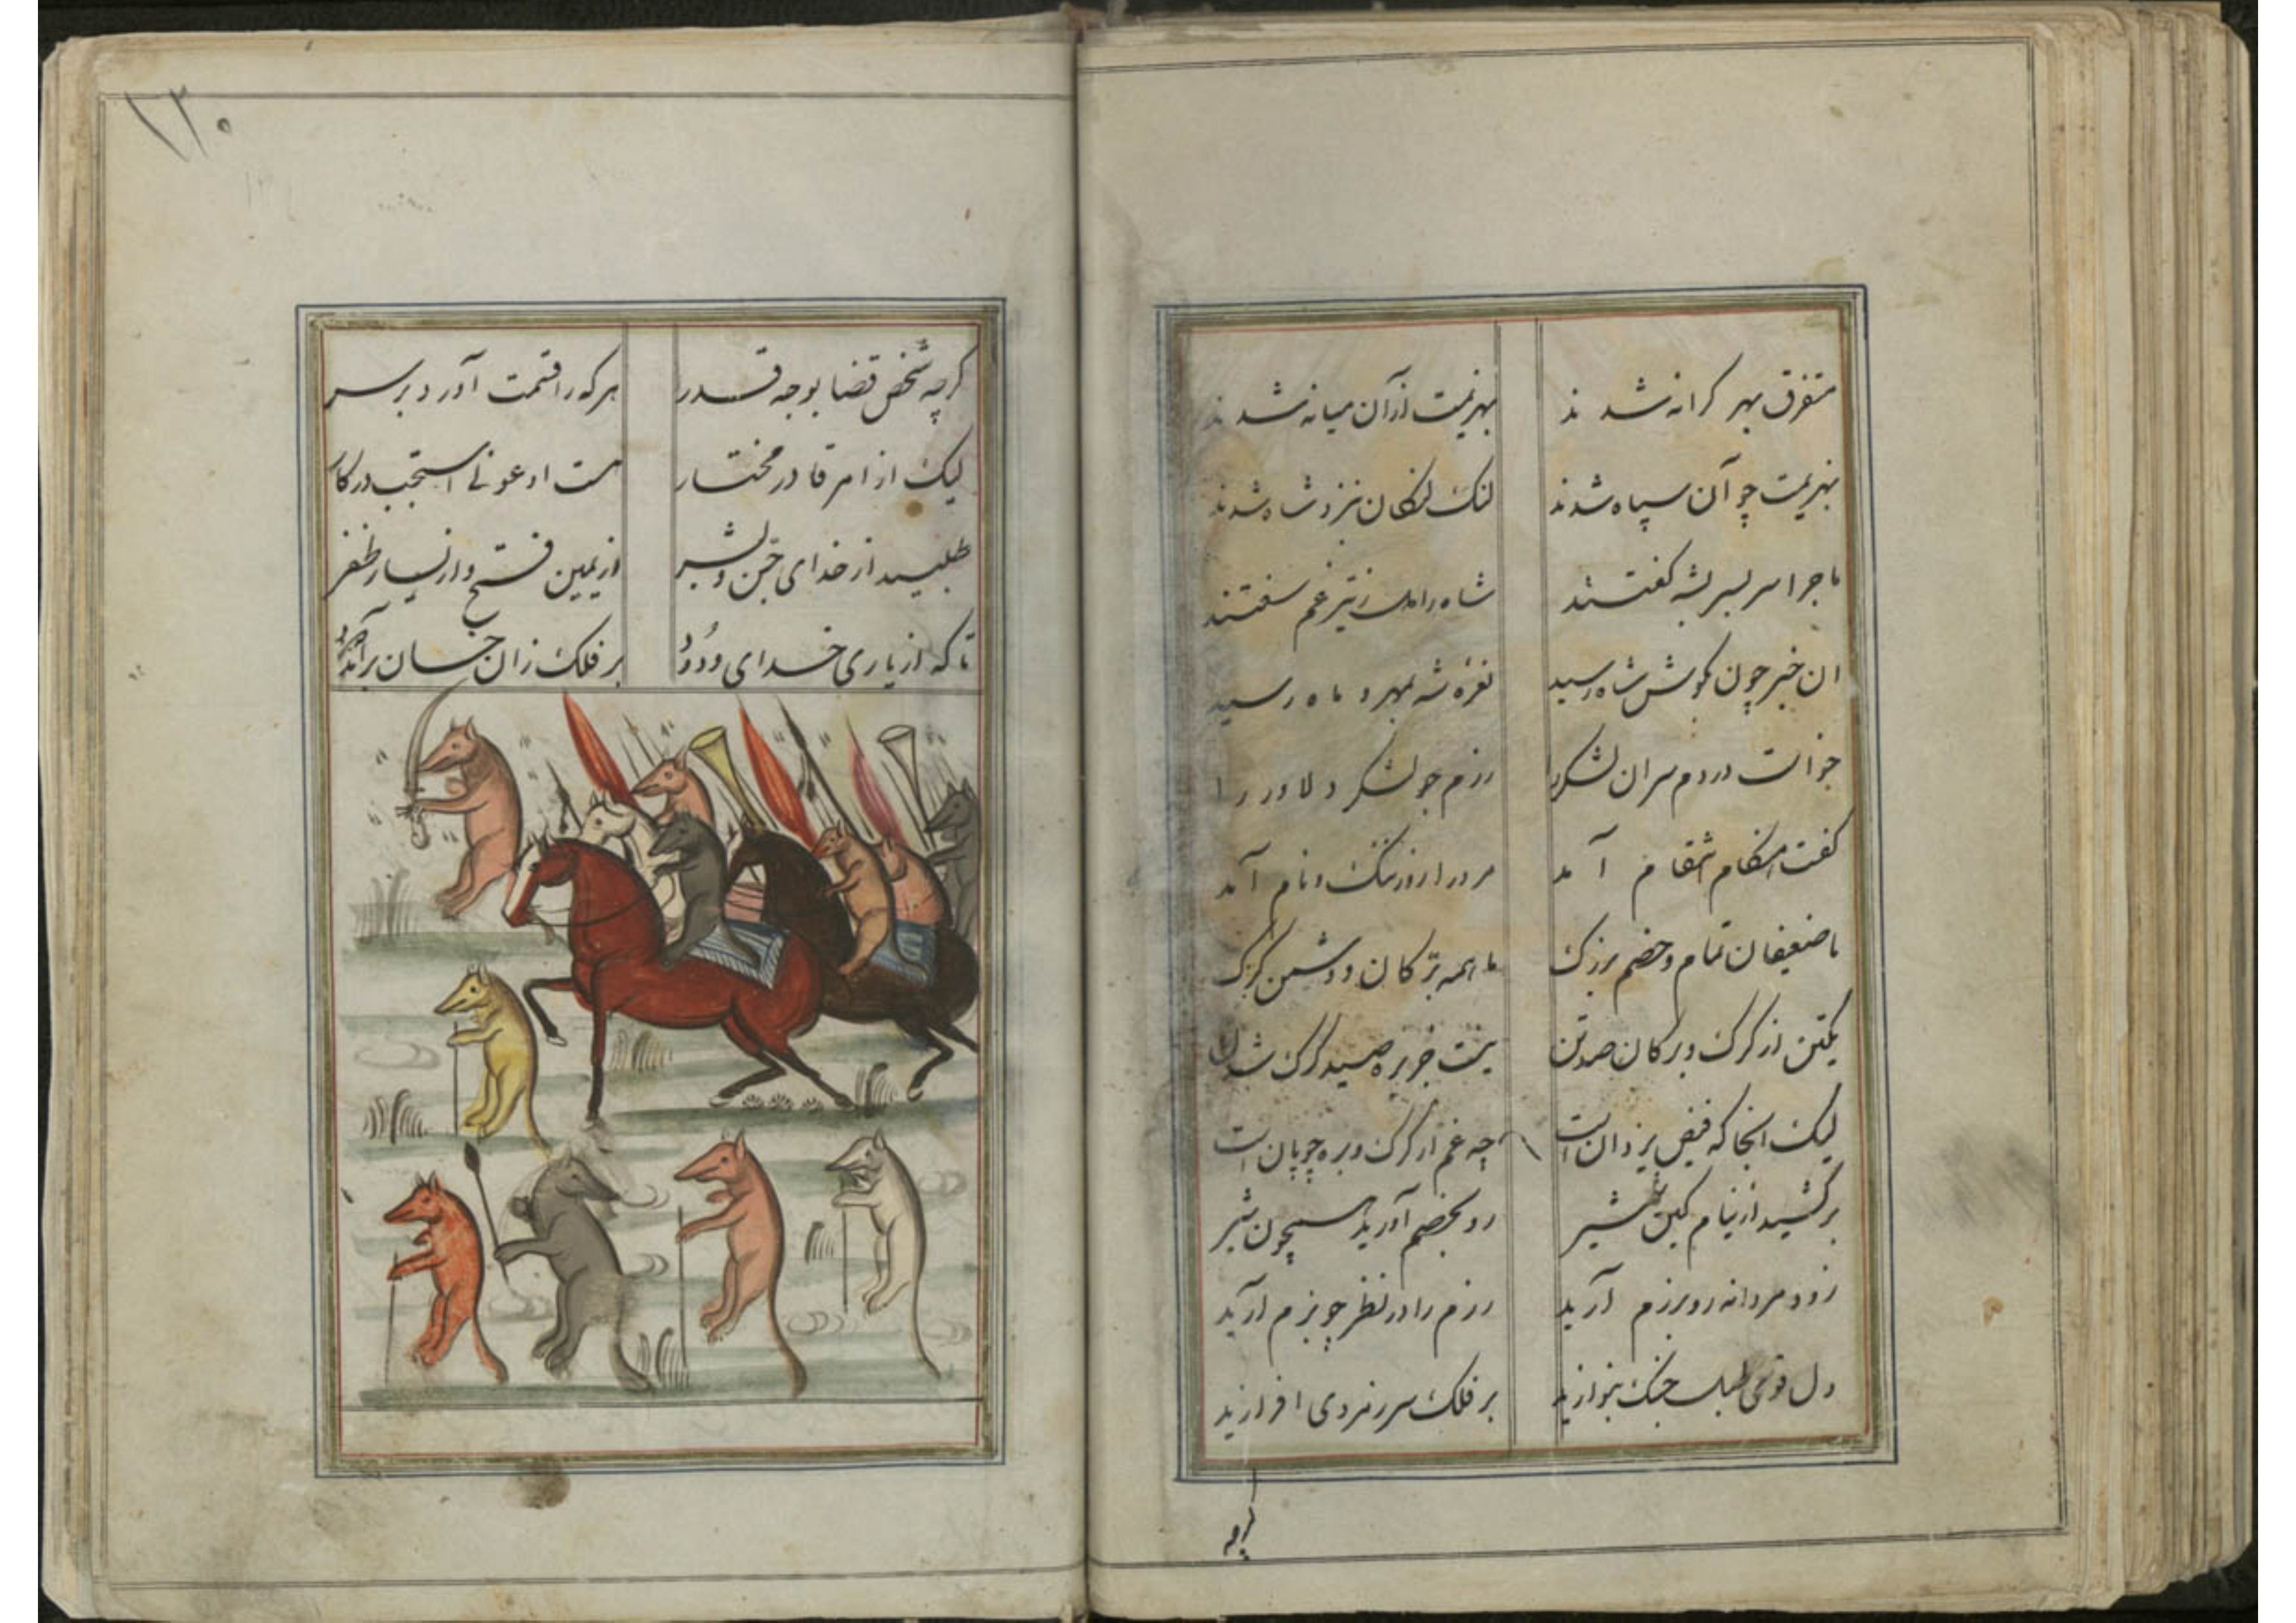 متفرق بهر کرانه شدند بهزیمت ازآن میانه شدند
بهزیمت چو آن سپاه شدند لنک لنکان بنزد شاه شدند
ماجرا سر بسر بشه کفتند شاه را دل ز تیر غم سفتند
ان خبر چون بکوش شاه رسید نعرهٔ شه بمهر و ماه رسید
خواست در دم سران لشکر را رزم جو لشکر دلاور را
کفت هنکام انتقام آمد مرد را روز ننک و نام آمد
ما ضعیفان تمام و خصم بزرک ما همه برکان و دشمن کرک
یکتن از کرک و برکان صد تن نیست جز بره صید کرک شدن
لیک انجا که فیض یزدان است چه غم از کرک و بره چوپان است
برکشید از نیام کین شمشیر رو بخصم آورید همچون شیر
زود مردانه رو برزم آرید رزم را در نظر چو بزم آرید
دل قوی طبل جنک بنوازید بر فلک سر زمردی افرازید
کرچه
۱۲۰
کرچه شخص قضا بوجه قدر هرکه را قسمت آورد بر سر
لیک از امر قادر مختار هست ادعونی استجب در کار
طلبید از خدای جن و بشر از یمین فتح و از یسار ظفر
تا که از یاری خدای ودود بر فلک زان خسان برآید دود